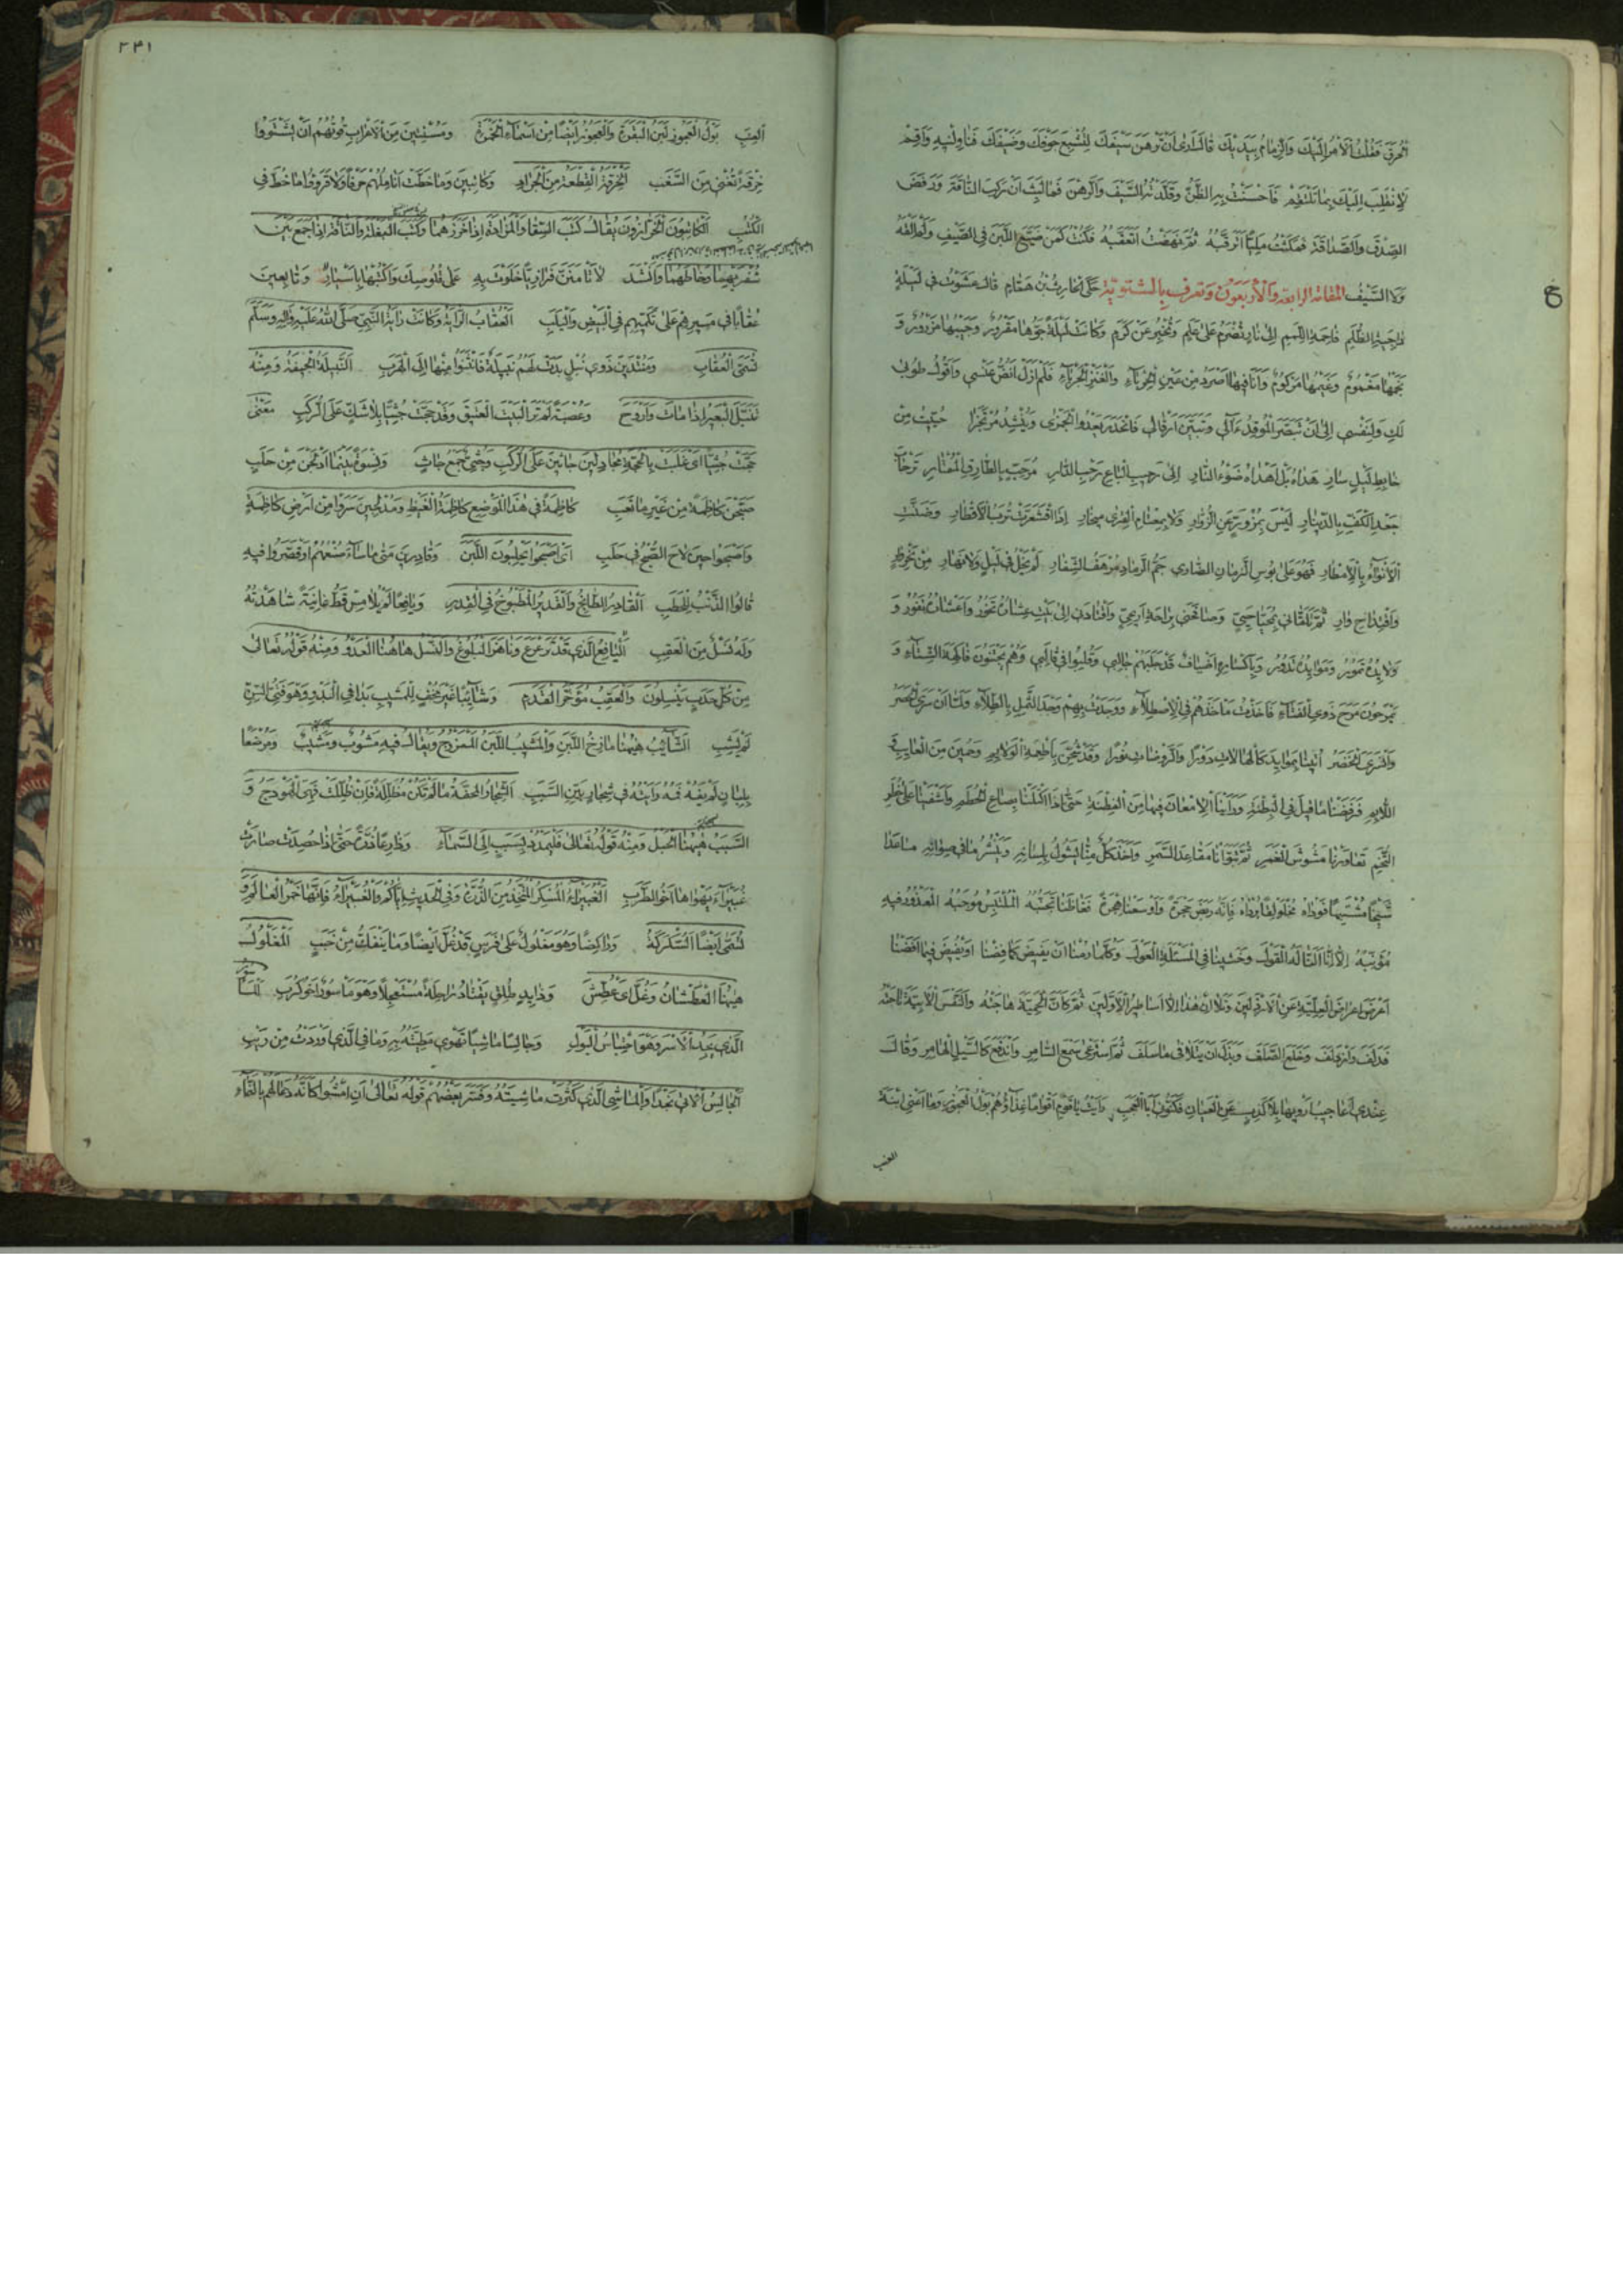 الحرق فقلت الأمر إليك والزمام بيديك قال أرى أن ترهن سيفك لتشبع جوفك وضيفك فناولنيه وأقم
لأنقلب إليك بما تلتقم فأحسنت به الظن وقلدته السيف والرهن فما لبث أن ركب الناقة ورفض
الصدق والصداقة فمكثت مليا أترقبه ثم نهضت أتعقبه فكنت كمن ضيع اللبن في الصيف ولم ألقه
ولا السيف المقامة الرابعة والأربعون وتعرف بالشتوية حكى الحارث بن همام قال عشوت في ليلة
داجية الظلم فاحمة اللمم إلى نار تضرم على علم وتخبر عن كرم وكانت ليلة جوها مقرور وجيبها مزرور و
نجمها مغموم وغيمها مركوم وأنا فيها أصرد من عين الحرباء والعنز الجرباء فلم أزل أنص عنسي وأقول طوبى
لك ولنفسي إلى أن تبصر الموقد آلي وتبين إرقالي فانحدر يعدو الجمزى وينشد مرتجزا حييت من
خابط ليل ساري هداه بل أهداه ضوء النار إلى رحيب الباع رحب الدار مرحب بالطارق الممتار ترحاب
جعد الكف بالدينار ليس بمزور عن الزوار ولا بمعتام القرى مئخار إذا اقشعرت ترب الأقطار وضنت
الأنواء بالأمطار فهو على بوس الزمان الضاري جم الرماد مرهف الشفار لم يخل في ليل ولا نهار من نحر وار
واقتداح واري ثم تلقاني بمحيا حيي وصافحني براحة أريحي واقتادني إلى بيت عشاره تخور وأعشاره تفور و
ولائده تمور وموائده تدور وبأكساره أضياف قد جلبهم جالبي وقلبوا في قالبي وهم يجتنون فاكهة الشتاء و
يمرحون مرح ذوي الفتاء فأخذت مأخذهم في الاصطلاء ووجدت بهم وجد الثمل بالطلاء ولما أن سرى الحصر
وانسرى الخصر أتينا بموائد كالهالات دورا والروضات نورا وقد شحن بأطعمة الولائم وحمين من العائب و
اللائم فرفضنا ما قيل في البطنة ورأينا الإمعان فيها من الفطنة حتى إذا اكتلنا بصاع الحطم وأشفينا على خطر
التخم تعاورنا مشوش الغمر ثم تبوأنا مقاعد السمر وأخذ كل منا يشول بلسانه وينشر ما في صوانه ما عدا
شيخا مشتهبا فوداه مخلولقا برداه فإنه ربض حجرة وأوسعنا هجرة فغاظنا تجنبه الملتبس موجبه المعذور فيه
مؤنبه إلا أنا ألنا له القول وخشينا في المسئلة العول وكلما رمنا أن يفيض كما فضنا أو يفيض فيما أفضنا
أعرض إعراض العلية عن الأرذلين وتلا إن هذا إلا أساطير الأولين ثم كأن الحمية هاجته والنفس الأبية ناجته
فدلف وازدلف وخلع الصلف وبذل أن يتلافى ما سلف ثم استرعى سمع السامر واندفع كالسيل الهامر وقال
عندي أعاجيب أرويها بلا كذب عن العيان فكنوني أبا العجب رأيت يا قوم أقواما غذاؤهم بول العجوز وما أعني ابنة
العنب
٢٤١
العنب بول العجوز لبن البقرة والعجوز أيضا من أسماء الخمرة ومسنتين من الأعراب قوتهم أن يشتووا
خرقة تغني من السغب الخرقة القطعة من الجراد وكاتبين وما خطت أناملهم حرفا ولا قرؤا ما خط في
الكتب الكاتبون الخرازون يقال كتب السقاء والمزادة إذا خرزهما وكتب البغلة والناقة إذا جمع بين
شفريهما وخاطهما وأنشد لا تأمنن فزاريا خلوت به على قلوصك واكتبها بأسيار وتابعين
عقابا في مسيرهم على تكميهم في البيض واليلب العقاب الراية وكانت راية النبي صلى الله عليه وآله وسلم
تسمى العقاب ومنتدين ذوي نبل بدت لهم نبيلة فانثنوا منها إلى الهرب النبيلة الجيفة ومنه
تنبل البعير إذا مات وأروح وعصبة لم تر البيت العتيق وقد حجت جثيا بلا شك على الركب معنى
حجت جثيا أي غلبت بالحجة مجادلين جاثين على الركب وجثي جمع جاث ونسوة بعدما أدلجن من حلب
صبحن كاظمة من غير ما تعب كاظمة في هذا الموضع كاظمة الغيظ ومدلجين سروا من أرض كاظمة
وأصبحوا حين لاح الصبح في حلب أي أصبحوا يحلبون اللبن وقادرين متى ما ساء صنعهم أو قصروا فيه
قالوا الذنب للحطب القادر الطابخ والقدير المطبوخ في القدر ويافعا لم يلامس قط غانية شاهدته
وله نسل من العقب اليافع الذي قد ترعرع وناهز البلوغ والنسل هاهنا العدو ومنه قوله تعالى
من كل حدب ينسلون والعقب مؤخر القدم وشائبا غير مخف للمشيب بدا في البدو وهو فتي السن
لم يشب الشائب هيهنا مازج اللبن والمشيب اللبن الممزوج ويقال فيه مشوب ومشيب ومرضعا
بلبان لم يفه فمه رأيته في شجار بين السبب الشجار المحفة ما لم تكن مظللة فإن ظللت فهي الهودج و
السبب هيهنا الحبل ومنه قوله تعالى فليمدد بسبب إلى السماء وزارعا ذرة حتى إذا حصدت صارت
غبيراء يهواها أخو الطرب الغبيراء المسكر المتخذ من الذرة وفي الحديث إياكم والغبيراء فإنها خمر العالم و
تسمى أيضا السكركة وراكضا وهو مغلول على فرس قد غل أيضا وما ينفك من خبب المغلول
هيهنا العطشان وغل أي عطش وذا يد طلق يقتاد راحلة مستعجلا وهو مأسور أخو كرب المأسور
الذي يجد الأسر وهو احتباس البول وجالسا ماشيا تهوي مطيته به وما في الذي أوردت من ريب
الجالس الآتي نجدا والماشي الذي كثرت ماشيته وفسر بعضهم قوله تعالى أن امشوا كأنه دعا لهم بالنماء